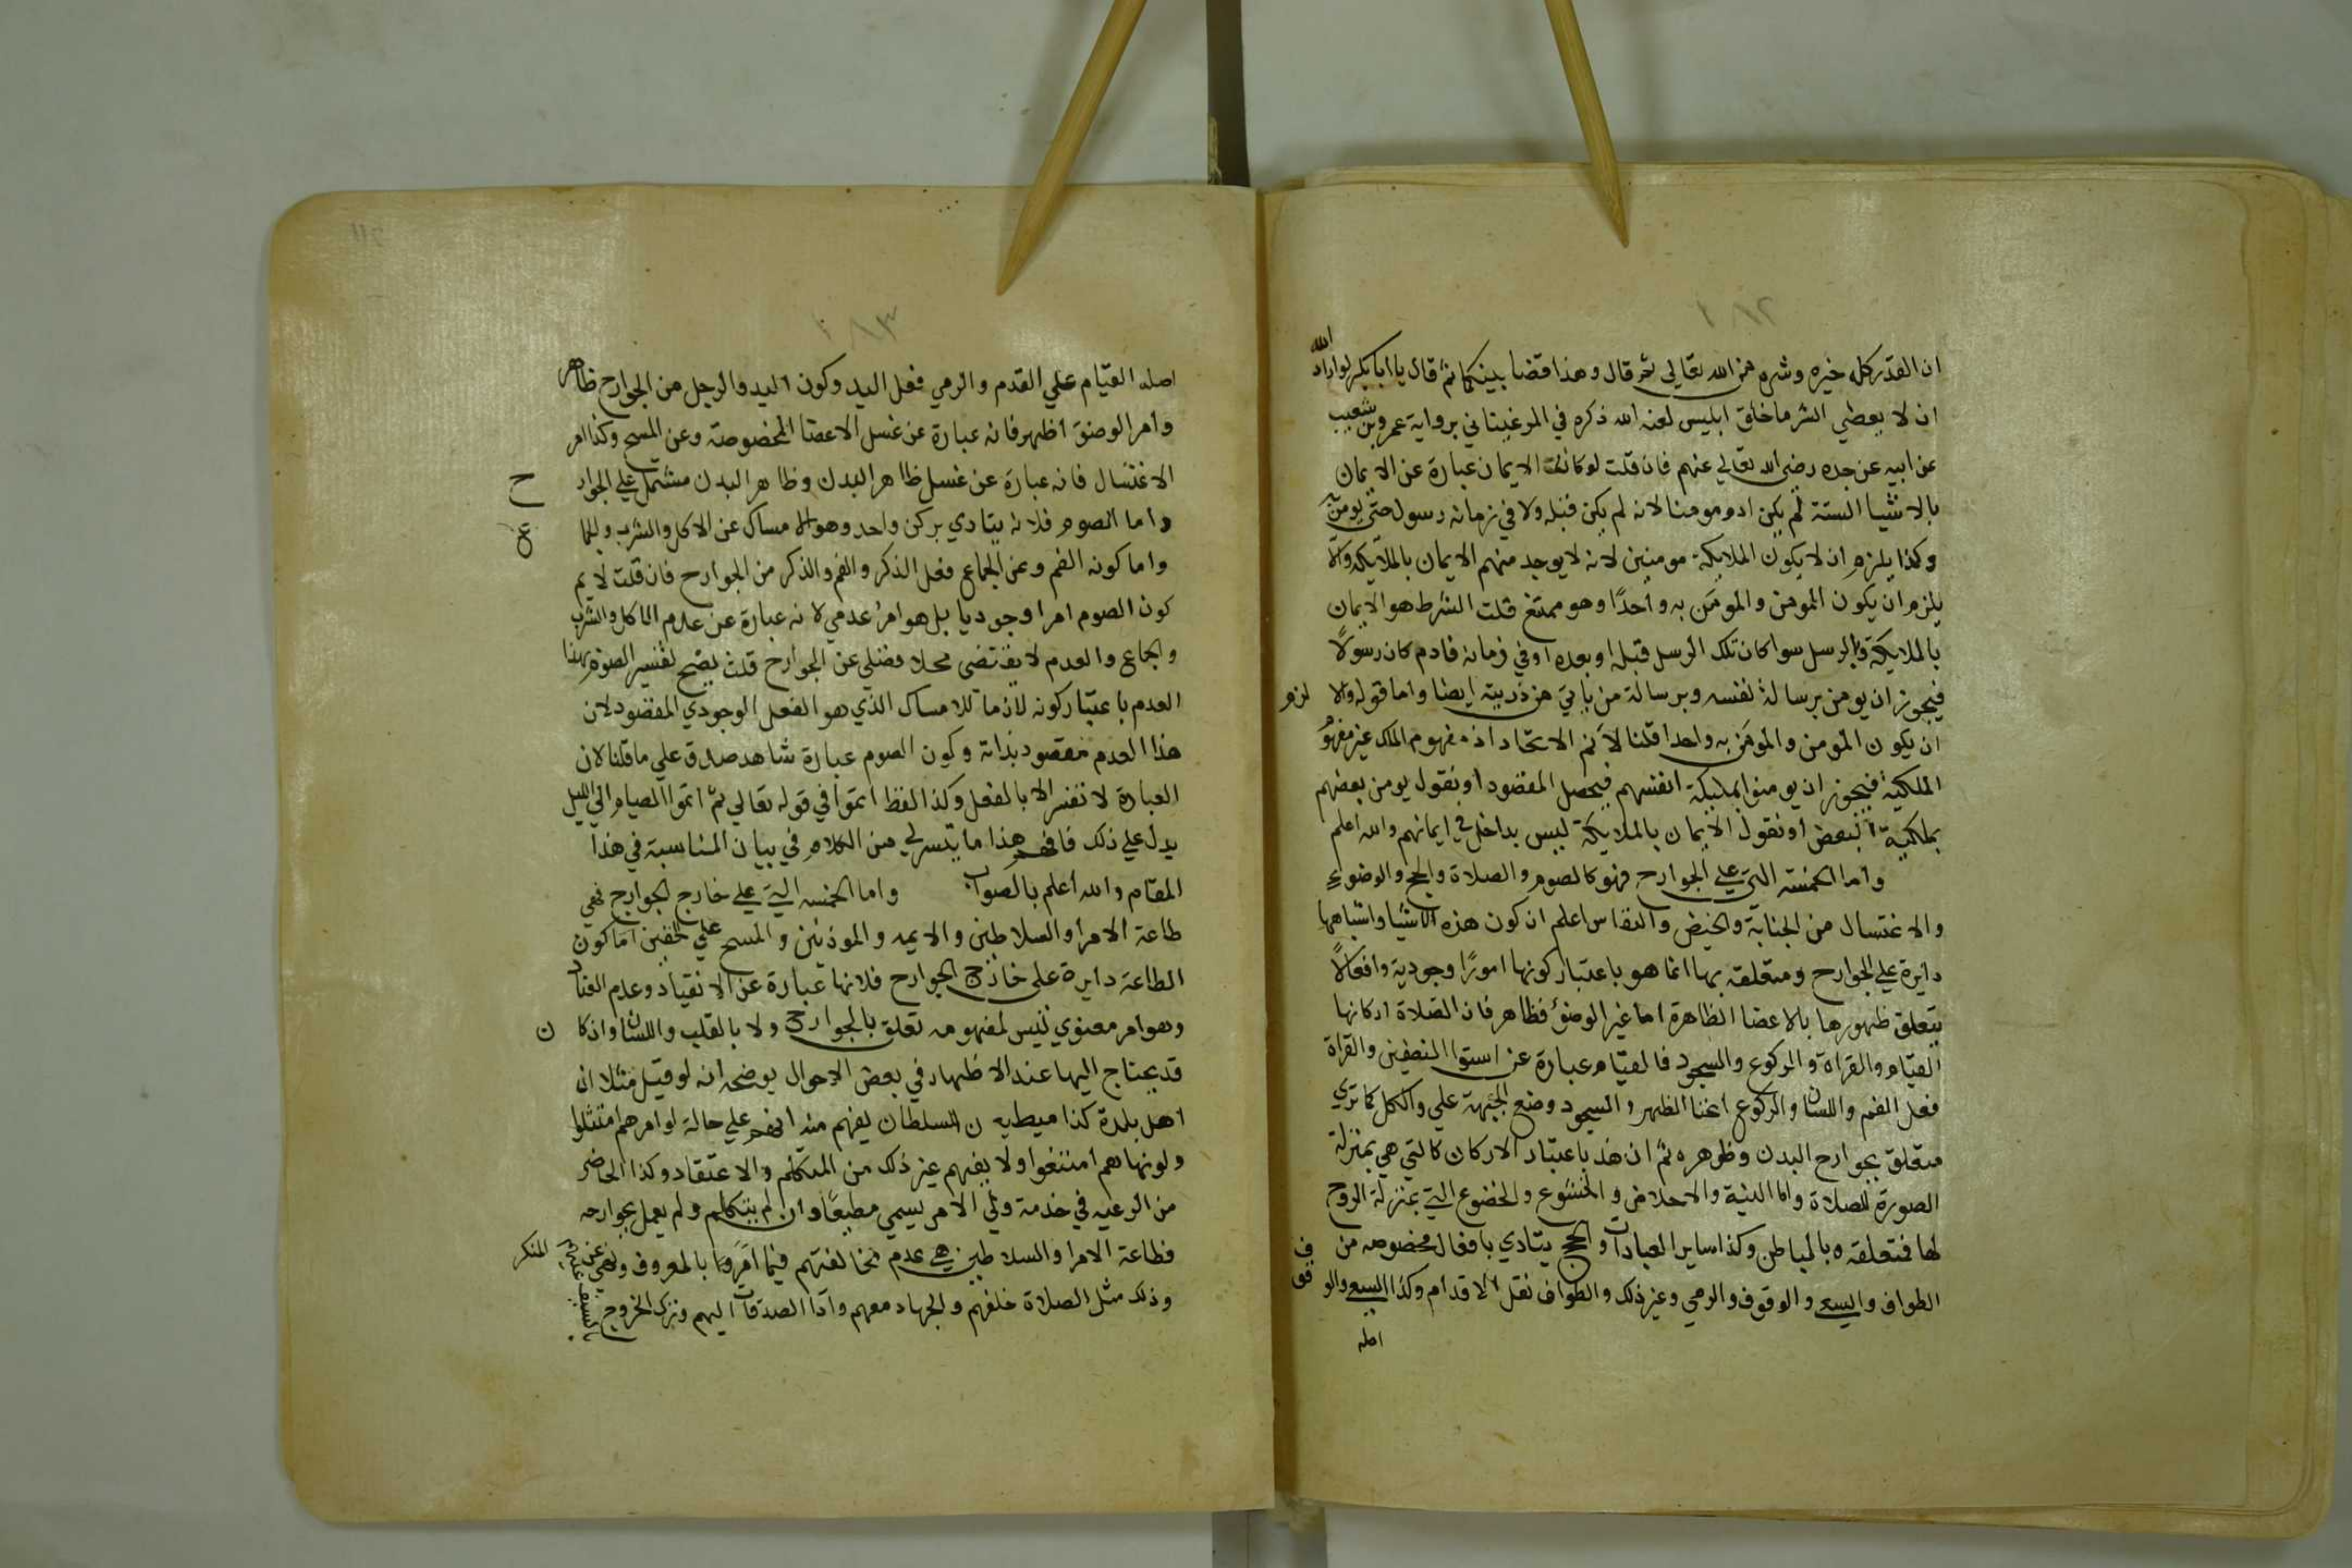 ١٨٢
ان القدر كله خيره وشره من الله تعالي ثم قال وهذا قضا بينكما ثم قال يا أبا بكر لو اراد الله
ان لا يعطي الشر ما خلق ابليس لعنه الله ذكره في المرغيناني برواية عمرو بن شعيب
عن ابيه عن جده رضي الله تعالي عنهم فان قلت لو كانت الايمان عبارة عن الايمان
بالاشيا الستة لم يكن ادم مومنا لانه لم يكن قبله ولا في زمانه رسول حتي يومن
وكذا يلزم ان لا يكون الملايكة مومنين لانه لا يوجد منهم الايمان بالملايكة والا
يلزم ان يكون المومن والمومَن به واحدًا وهو ممتنع قلت الشرط هو الايمان
بالملايكة وبالرسل سوا كان تلك الرسل قبله او بعده او في زمانه فادم كان رسولًا
فيجوز ان يومن برسالة نفسه وبرسالة من ياتي من ذريته ايضا واما قوله والا لزم
ان يكون المومن والمومَن به واحدا قلنا لا نم الاتحاد اذ مفهوم الملك غير مفهوم
الملكية فيجوز ان يومنوا بملكية انفسهم فيحصل المقصود او نقول يومن بعضهم
بملكية البعض او نقول الايمان بالملايكة ليس بداخل في ايمانهم والله اعلم
واما الخمسة التي علي الجوارح فهو كالصوم والصلاة والحج والوضوء
والاغتسال من الجنابة والحيض والنفاس اعلم ان كون هذه الاشيا واشباهها
دايرة علي الجوارح ومتعلقة بها انما هو باعتبار كونها امورًا وجودية وافعالًا
يتعلق ظهورها بالاعضا الظاهرة اما غير الوضوء فظاهر فان الصلاة اركانها
القيام والقراة والركوع والسجود فالقيام عبارة عن استوا النصفين والقراة
فعل الفم واللسان والركوع انحنا الظهر والسجود وضع الجبهة علي والكل كما تري
متعلق بجوارح البدن وظوهره ثم ان هذ باعتبار الاركان كالتي هي بمنزلة
الصورة للصلاة واما النية والاخلاص والخشوع والخضوع التي بمنزلة الروح
لها فمتعلقه بالباطن وكذا ساير العبادات والحج يتادي بافعال مخصوصه من
الطواف والسعي والوقوف والرمي وغير ذلك والطواف نقل الاقدام وكذا السعي والوقوف
اصله
١٨٣
اصله القيام علي القدم والرمي فعل اليد وكون اليد والرجل من الجوارح ظاهر
وامر الوضوء اظهر فانه عبارة عن غسل الاعضا المخصوصة وعن المسح وكذا امر
الاغتسال فانه عبارة عن غسل ظاهر البدن وظاهر البدن مشتمل علي الجوارح
واما الصوم فلانه يتادي بركن واحد وهو الامساك عن الاكل والشرب والجماع
واما كونه الفم وعن الجماع فعل الذكر والفم والذكر من الجوارح فان قلت لا نم
كون الصوم امرا وجوديا بل هو امرٌ عدمي لانه عبارة عن عدم الاكل والشرب
والجماع والعدم لا يقتضي محلا فضلي عن الجوارح قلت يصح تفسير الصوم بهذا
العدم باعتبار كونه لازما للامساك الذي هو الفعل الوجودي المقصود لان
هذا العدم مقصود بذاته وكون الصوم عبارة شاهد صدق علي ما قلنا لان
العبارة لا تفسر الا بالفعل وكذا لفظ اتموا في قوله تعالي ثم اتموا الصيام الي الليل
يدل علي ذلك فافهم هذا ما يتسر لي من الكلام في بيان المناسبة في هذا
المقام والله أعلم بالصواب واما الخمسه التي علي خارج الجوارح فهي
طاعة الامرا والسلاطين والايمه والموذنين والمسح علي الخفين اما كون
الطاعة دايرة علي خارج الجوارح فلانها عبارة عن الانقياد وعدم العناد
وهو امر معنوي ليس لمفهومه تعلق بالجوارح ولا بالقلب واللسان وان كان
قد يحتاج اليها عند الاظهار في بعض الاحوال يوضحه انه لو قيل مثلا ان
اهل بلدة كذا ميطيه ن للسلطان يفهم منه انهم علي حالة لو امرهم امتثلوا
ولو نهاهم امتنعوا ولا يفهم غير ذلك من التكلم والاعتقاد وكذا الحاضر
من الرعيه في خدمة ولي الامر يسمي مطيعًا وان لم يتكلم ولم يعمل بجوارحه
فطاعة الامرا والسلاطين هي عدم مخالفتهم فيما اَمَروا بالمعروف ونهي عن المنكر
وذلك مثل الصلاة خلفهم والجهاد معهم وادا الصدقات اليهم وترك الخروج بالسيف عليهم